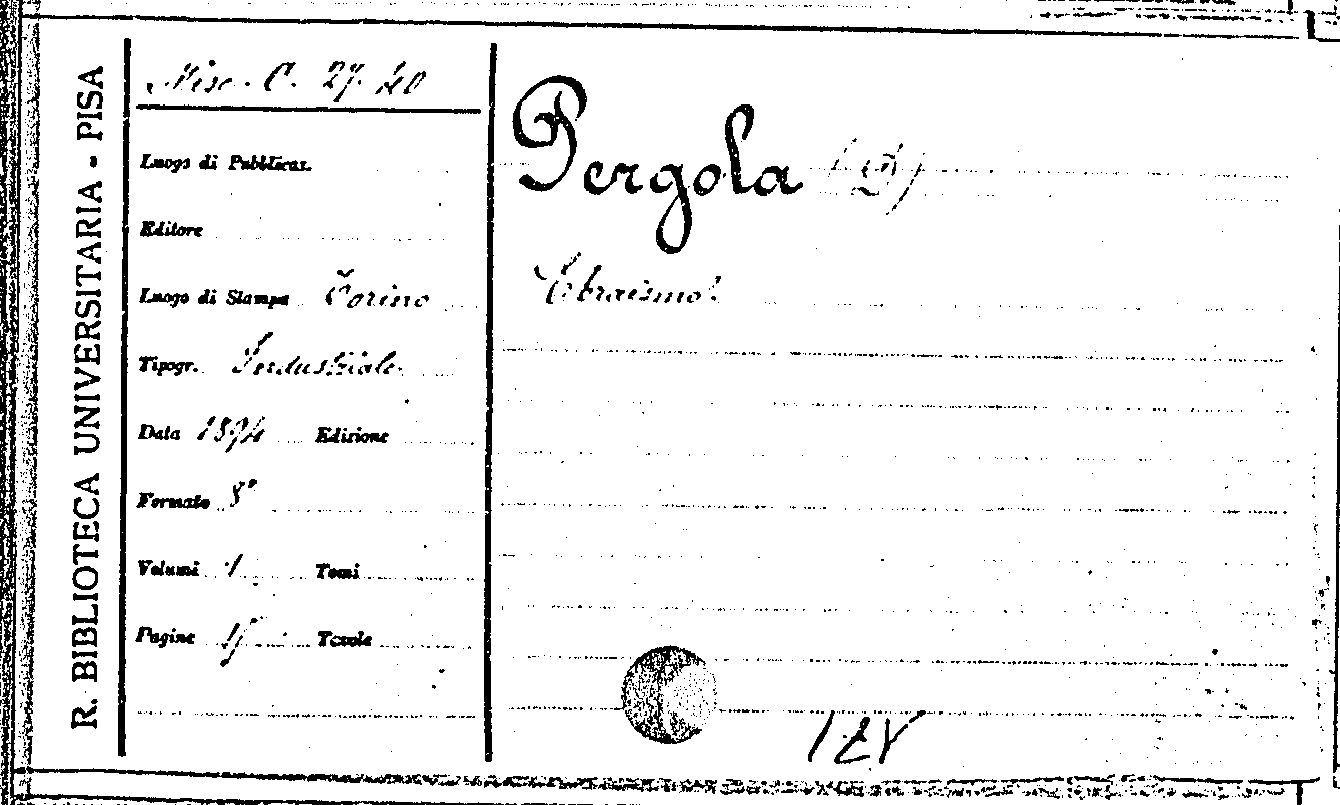 R. BIBLIOTECA UNIVERSITARIA - PISA
Misc. C. 27. 40
Luogo di Pubblicaz.
Editore
Luogo di Stampa Torino
Tipogr. Industriale
Data 1894 Edizione
Formato 8°
Volumi 1 Tomi
Pagine Tavole
Pergola
Ebraismo!